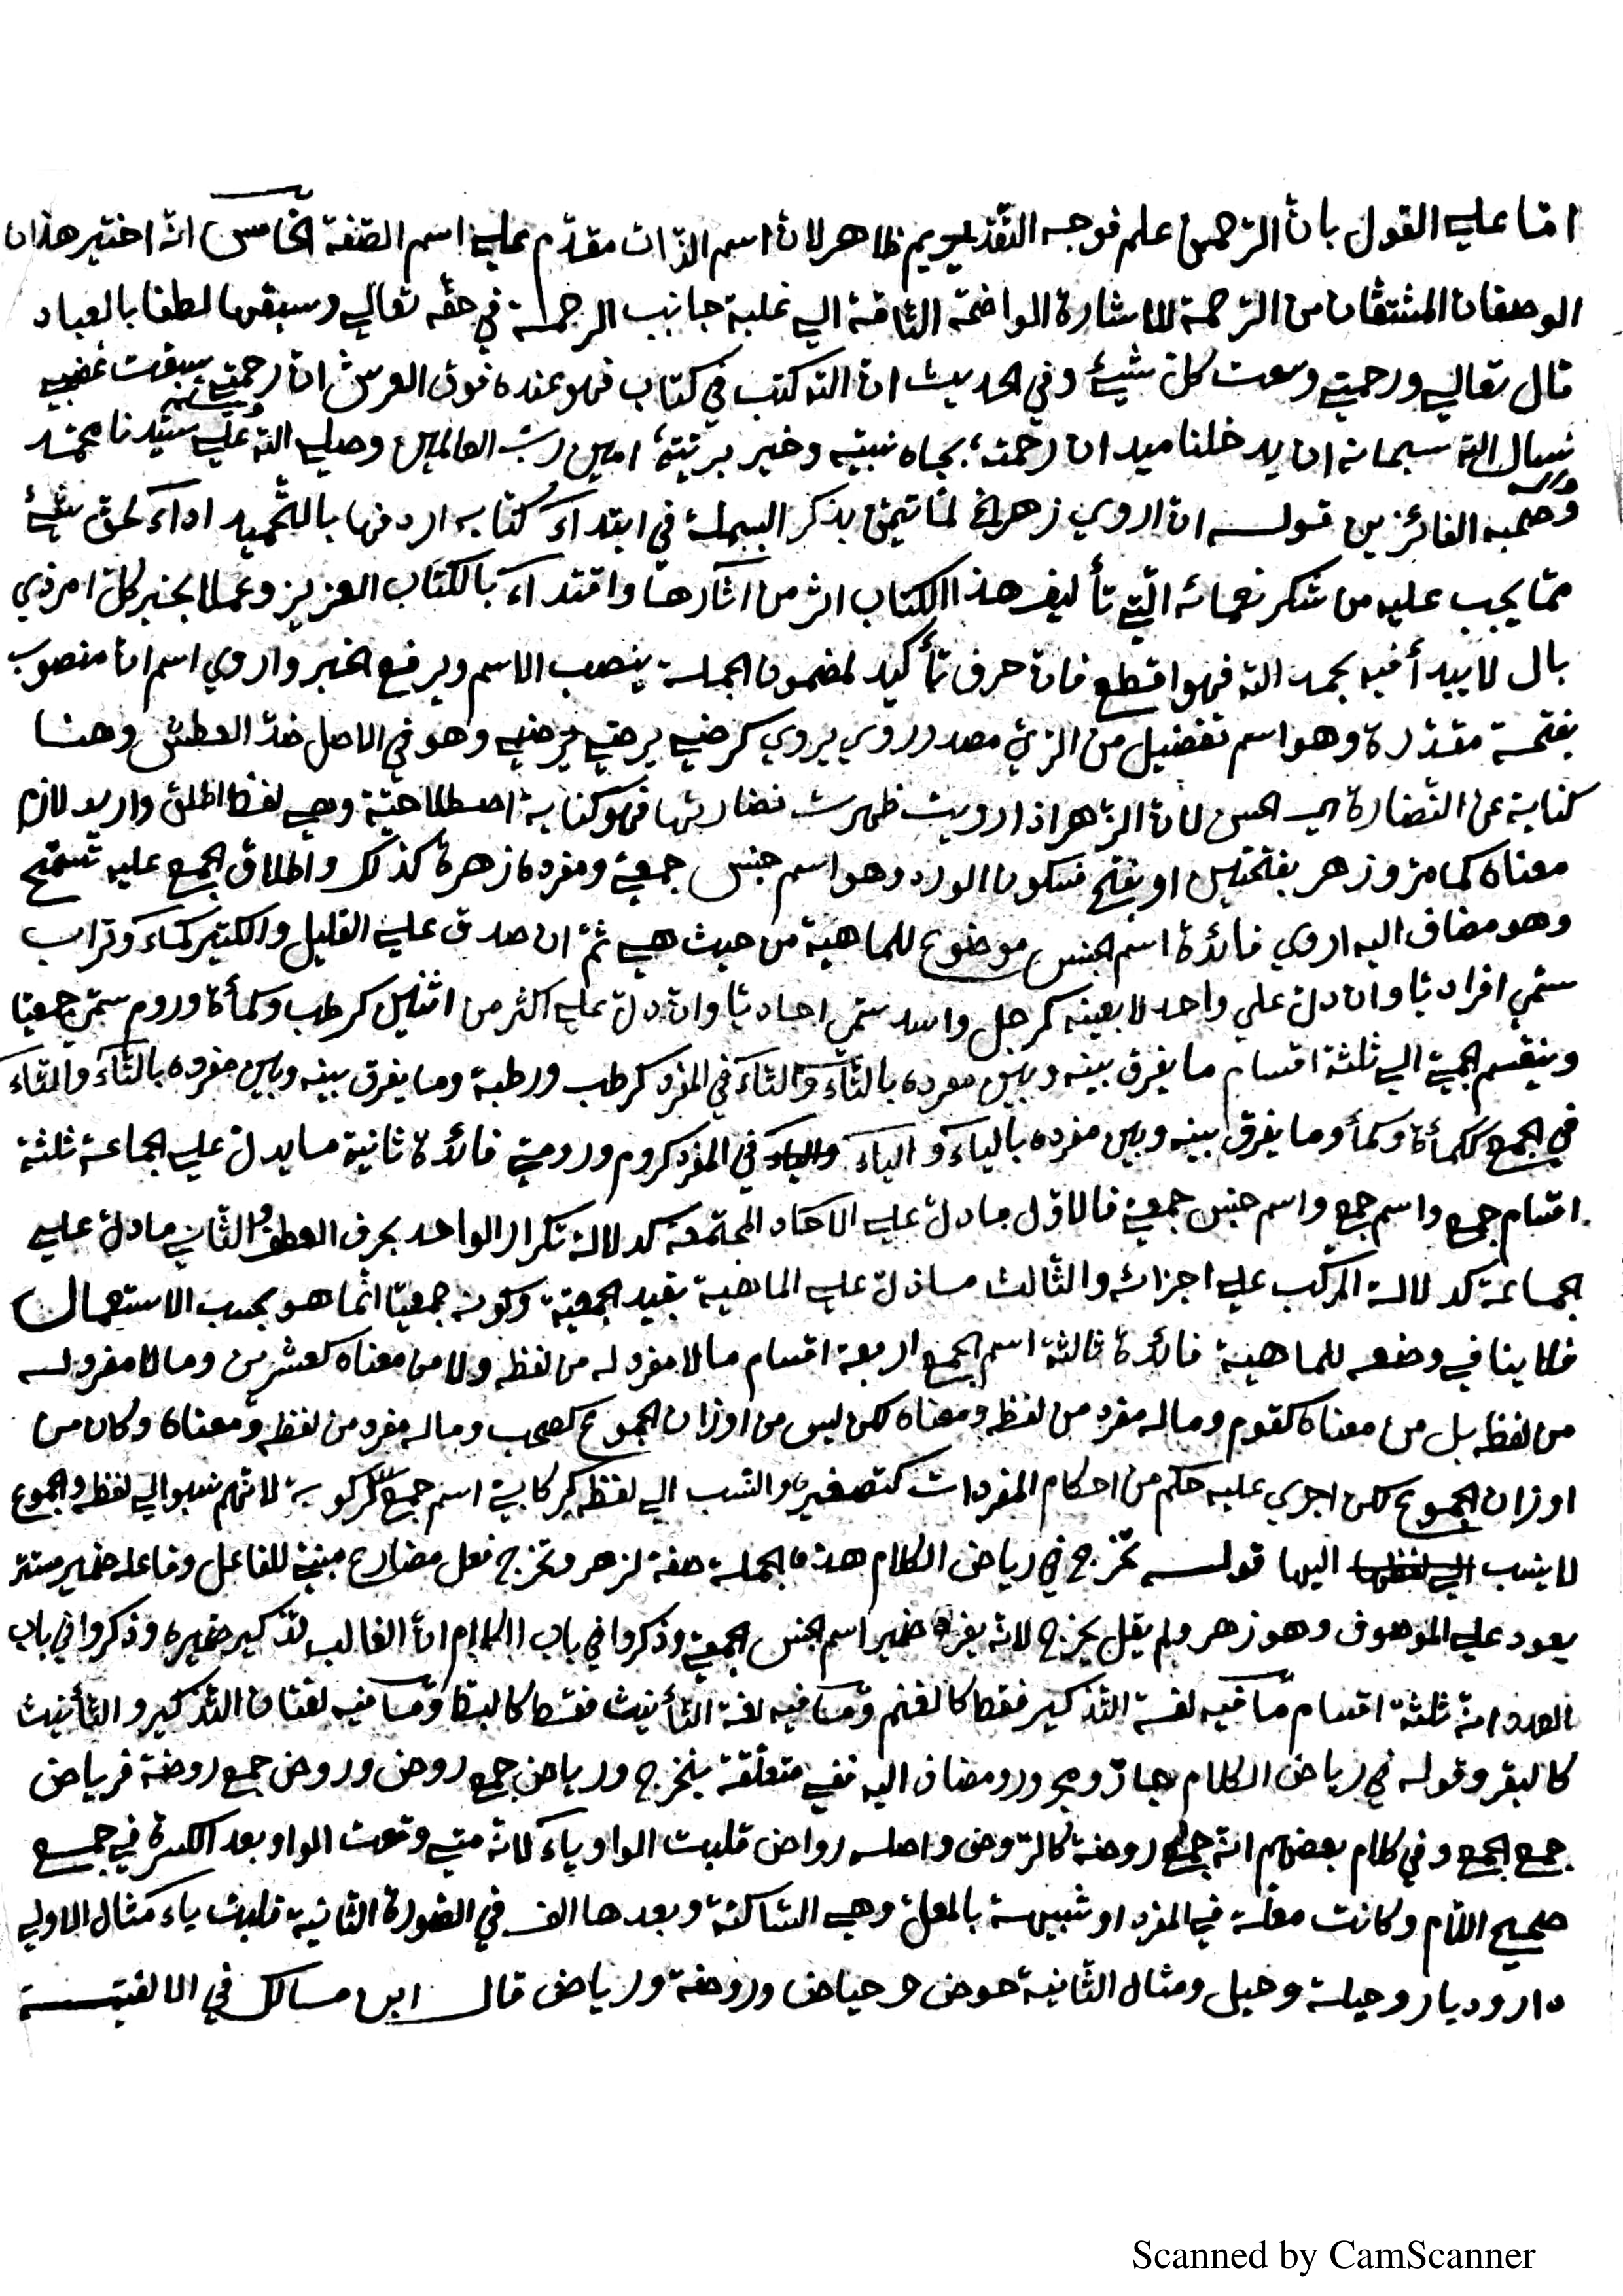 امّا علي القول بانّ الرّحمن علم فوجه التّقديم ظاهر لانّ اسم الذّات مقدّم علي اسم الصّفة الخامس انّه اختير هذان
الوصفان المشتقّان من الرّحمة للاشارة الواضحة التّامّة الي غلبة جانب الرحمة في حقّه تعالي وسبقها لطفا بالعباد
قال تعالي ورحمتي وسعت كلّ شيئ وفي الحديث انّ الله كتب في كتاب فهو عنده فوق العرش انّ رحمتي سبقت غضبي
نسال الله سبحانه ان يدخلنا ميدان رحمته بجاه نبيّه وخير بريّته امين ربّ العالمين وصلي الله علي سيّدنا محمّد
وآله
وصحبه الفائزين قوله انّ اروي زهر الخ لمّا تيمّن بذكر البسملة في ابتدآء كتابه اردفها بالتّحميد ادآء لحقّ شيئ
ممّا يجب عليه من شكر نعمائه الّتي تأليف هذا الكتاب اثر من آثارها واقتدآء بالكتاب العزيز وعملا بخبر كلّ امر ذي
بال لا يبدأ فيه بحمد الله فهو اقطع فانّ حرف تأكيد لمضمون الجملة ينصب الاسم ويرفع الخبر واروي اسم انّ منصوب
بفتحة مقدّرة وهو اسم تفضيل من الرّيّ مصدر روي يروي كرضي يرضي وهو في الاصل ضدّ العطش وهنا
كناية عن النّضارة اي الحسن لانّ الزّهر اذا رويت ظهرت نضارتها فهو كناية اصطلاحيّة وهي لفظ اطلق واريد لازم
معناه كما مرّ وزهر بفتحتين او بفتح فسكون الورد وهو اسم جنس جمعيّ ومفرده زهرة كذلك واطلاق الجمع عليه تسمّح
وهو مضاف اليه اروي فائدة اسم الجنس موضوع للماهية من حيث هي ثمّ ان صدق علي القليل والكثير كماء وتراب
سمّي افراديّا وان دلّ علي واحد لا بعينه كرجل واسد سمّي احاديّا وان دلّ علي اكثر من اثنين كرطب وكمأة وروم سمّي جمعيّا
وينقسم الجمعيّ الي ثلثة اقسام ما يفرق بينه وبين مفرده بالتّآء والتّآء في المفرد كرطب ورطبة وما يفرق بينه وبين مفرده بالتّآء والتّآء
في الجمع ككمأة وكمأ وما يفرق بينه وبين مفرده باليآء واليآء في المفرد كروم وروميّ فائدة ثانية ما يدلّ علي الجماعة ثلثة
اقسام جمع واسم جمع واسم جنس جمعيّ فالاوّل ما دلّ علي الآحاد المجتمعة كدلالة تكرار الواحد بحرف العطف والثّاني ما دلّ علي
الجماعة كدلالة المركّب علي اجزائه والثّالث ما دلّ علي الماهية بقيد الجمعيّة وكونه جمعيّا انّما هو بحسب الاستعمال
فلا ينافي وضعه للماهية فائدة ثالثة اسم الجمع اربعة اقسام ما لا مفرد له من لفظه ولا من معناه كعشرين وما لا مفرد له
من لفظه بل من معناه كقوم وما له مفرد من لفظه ومعناه لكن ليس من اوزان الجموع كصحب وما له مفرد من لفظه ومعناه وكان من
اوزان الجموع لكن اجري عليه حكم من احكام المفردات كتصغيره والنّسب الي لفظه كركابيّ اسم جمع لركوبة لانّهم نسبوا الي لفظه والجموع
لا ينسب اليها قوله تخرج في رياض الكلام هذه الجملة صفة لزهر وتخرج فعل مضارع مبنيّ للفاعل وفاعله ضمير مستتر
يعود علي الموصوف وهو زهر ولم يقل يخرج لانّه ضمير اسم الجنس الجمعيّ وذكروا في باب الكلام انّ الغالب تذكير ضميره وذكروا في باب
العدد انّه ثلثة اقسام ما فيه لغة التّذكير فقط كالغنم وما فيه لغة التّأنيث فقط كالبطّ وما فيه لغتان التّذكير والتّأنيث
كالبقر وقوله في رياض الكلام جارّ ومجرور ومضاف اليه ففي متعلّقة بتخرج ورياض جمع روض وروض جمع روضة فرياض
جمع الجمع وفي كلام بعضهم انّه جمع روضة كالرّوض واصله رواض قلبت الواو يآء لانّه متي وقعت الواو بعد الكسرة في جمع
صحيح اللّام وكانت معلّة في المفرد او شبيهة بالمعلّ وهي السّاكنة وبعدها الف في الصّورة الثّانية قلبت ياء مثال الاولي
دار وديار وحيلة وحيل ومثال الثّانية حوض وحياض وروضة ورياض قال ابن مالك في الالفيّة
Scanned by CamScanner